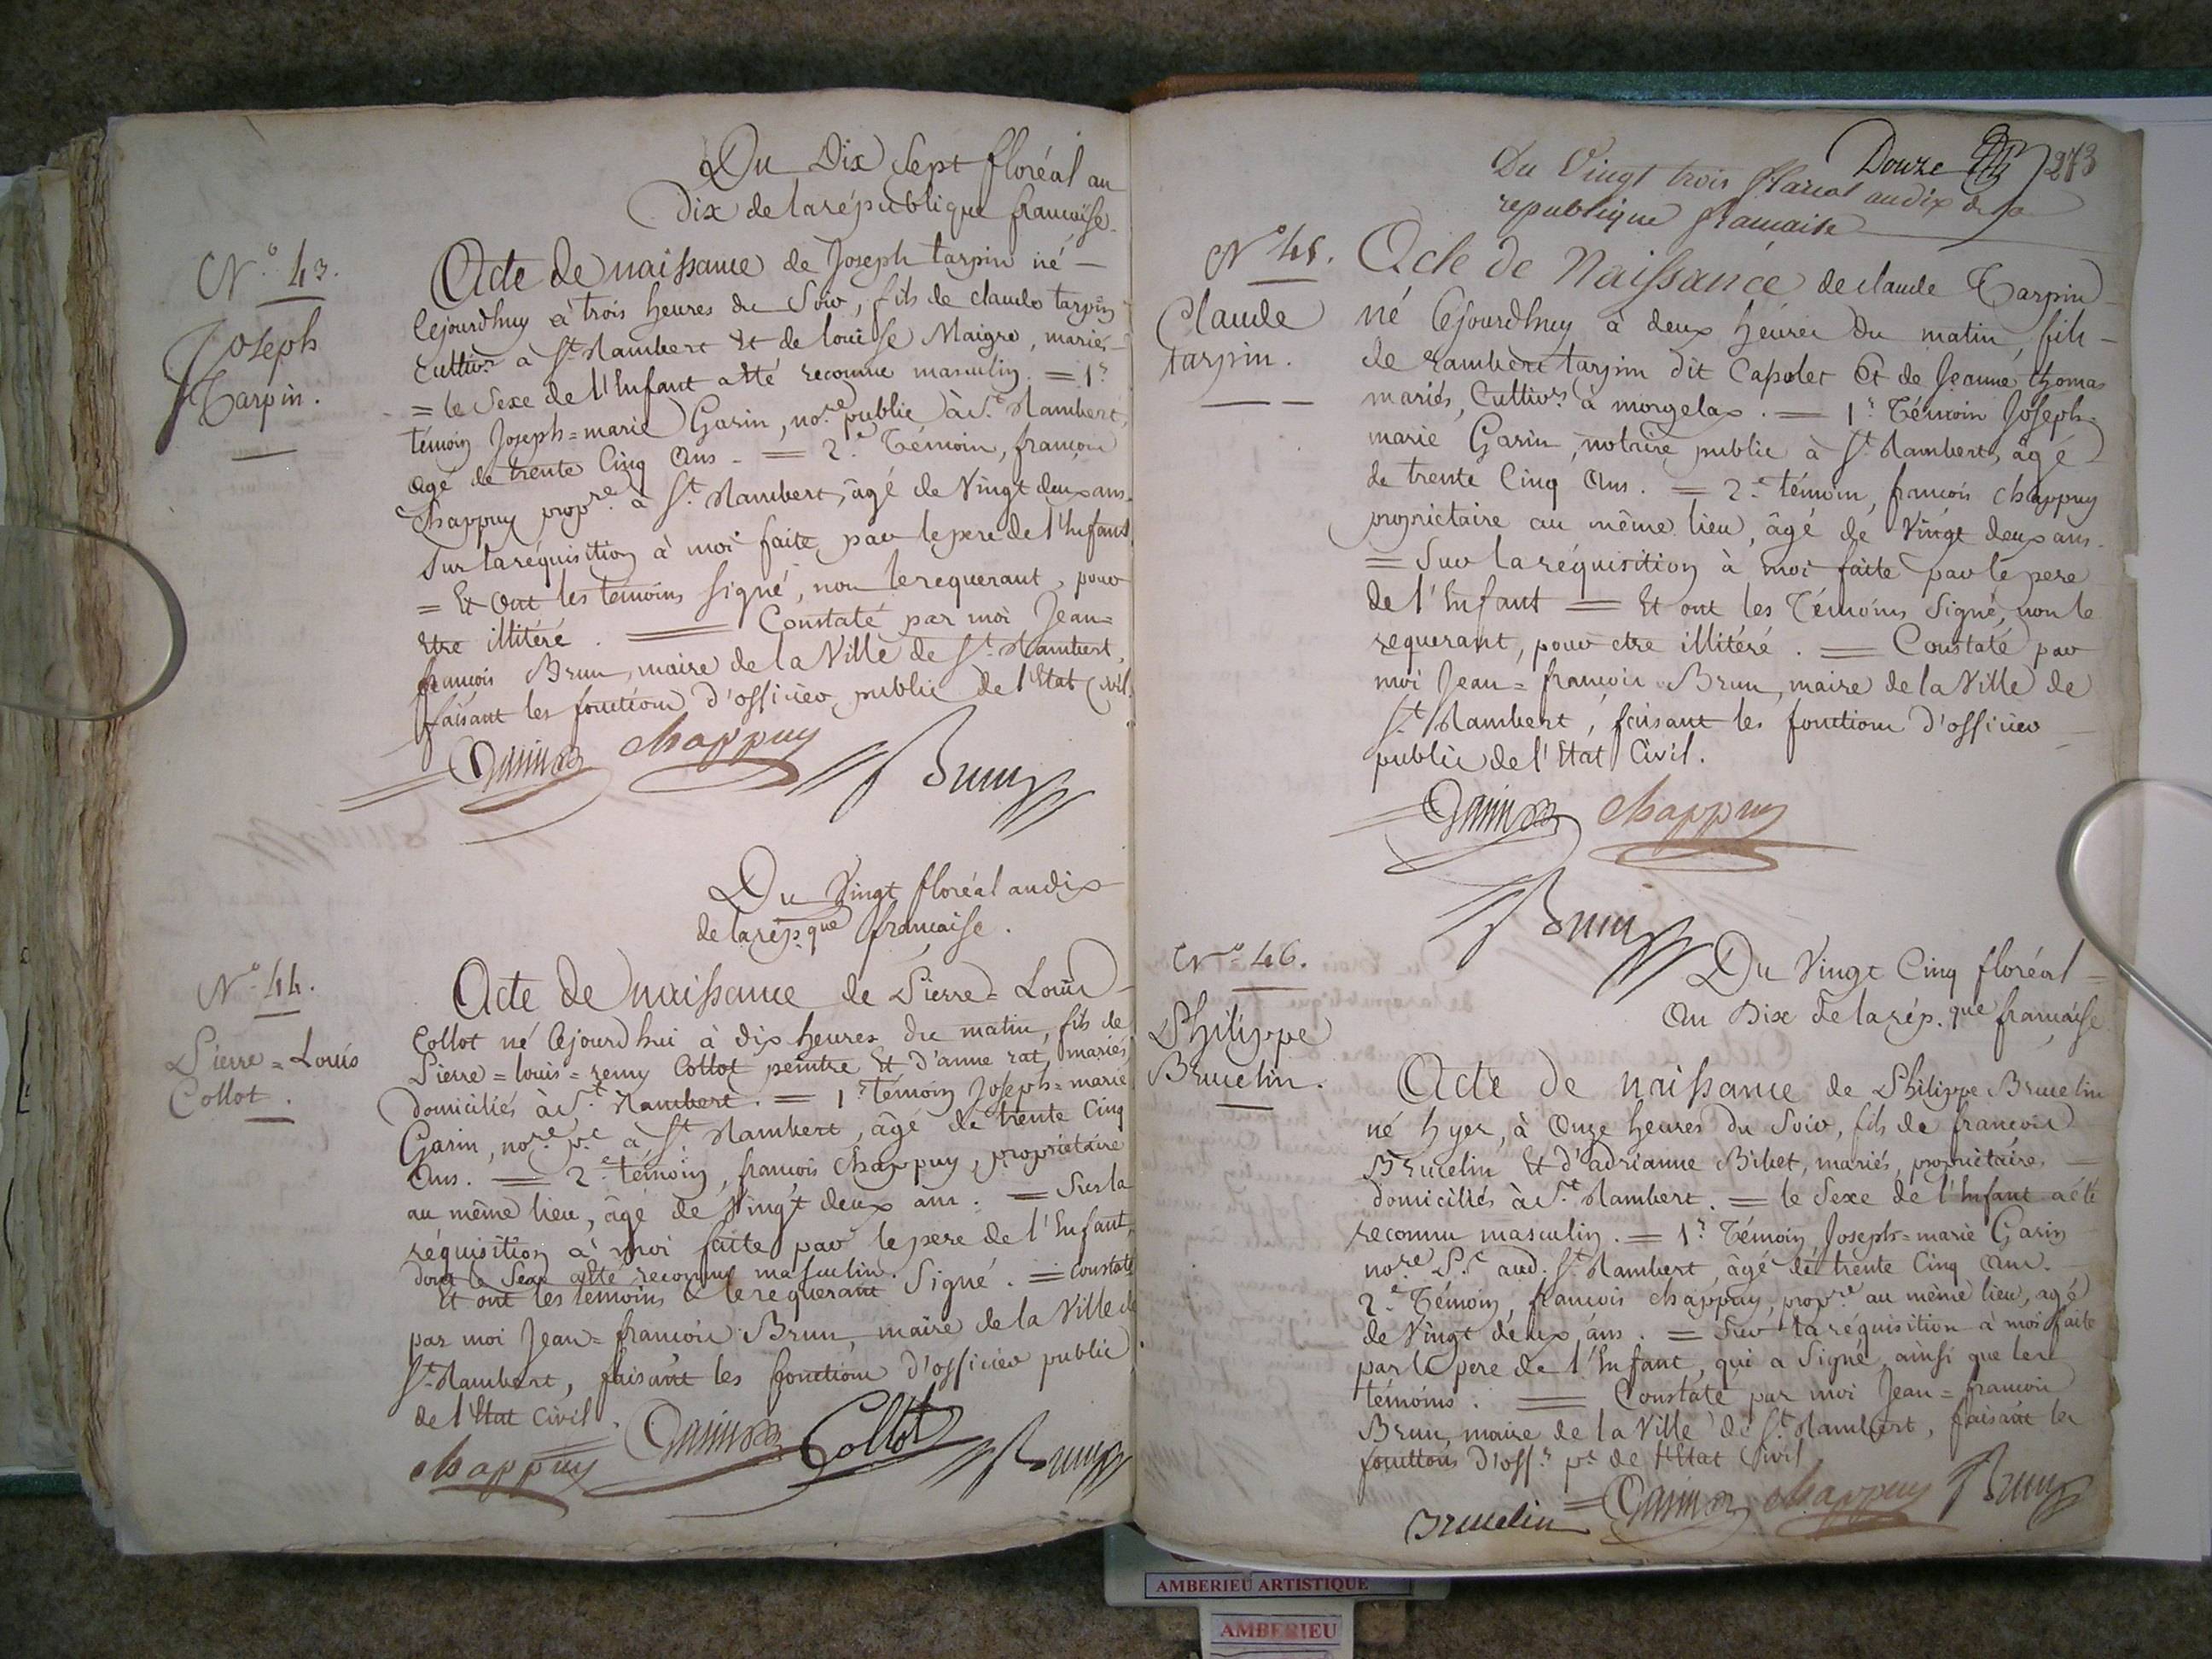 Du Dix Sept floréal an
Dix de la république françaisse.
N.º 43.
Joseph
Tarpin.
Acte de naissance de Joseph tarpin né
Cejourdhuy à trois heures du Soir, fils de claude tarpin
Cultiv.r à S.t Rambert Et de louise Maigre, mariés
= le Sexe de l'Enfant a été reconnu masculin. = 1.r
témoin Joseph=marie Garin, no.re public à S.t Rambert,
agé de trente Cinq Ans. = 2.e Témoin, françois
Chappuy prop.re à S.t Rambert, âgé de Vingt deux ans.
Sur la réquisition à moi faite, par le pere de l'Enfant
= Et Ont les temoins signé, non le requerant, pour
etre illitéré. = Constaté par moi Jean=
françois Brun, maire de la Ville de S.t Rambert,
faisant les fonctions d'officier public de l'Etat Civil.
Garin chappuy Brun
Du Vingt floréal an dix
de la rép.que française.
N.º 44.
Pierre=Louis
Collot.
Acte de naissance de Pierre=Louis
Collot né Cejourdhui à dix heures du matin, fils de
Pierre=louis=remy Collot peintre Et d'anne rat, mariés,
domiciliés à S.t Rambert. = 1.r témoin Joseph=marie
Garin, no.re p.c à S.t Rambert, âgé de trente Cinq
Ans. = 2.e témoin, françois Chappuy, propriétaire
au même lieu, âgé de Vingt deux ans. = Sur la
réquisition à moi faite par le pere de l'Enfant,
dont le Sexe a été reconnu masculin.
Et ont les temoins & le requerant Signé. = constaté
par moi Jean=françois Brun, maire de la Ville de
S.t Rambert, faisant les fonctions d'officier public
de l'Etat Civil.
chappuy Garin Collot Brun
Douze 273
Du Vingt trois floreal an dix de la
republique francaise
N.º 45.
Claude
tarpin.
Acte de Naissance de claude Tarpin
né Cejourdhuy à deux heures du matin, fils
de rambert tarpin dit Capolet Et de Jeanne thomas
mariés, Cultiv.rs à morgelas. = 1.r Témoin Joseph=
marie Garin, notaire public à S.t Rambert, âgé
de trente Cinq Ans. = 2.e témoin, françois chappuy
propriétaire au même lieu, âgé de Vingt deux ans.
= Sur la réquisition à moi faite par le pere
de l'Enfant = Et ont les Témoins Signé, non le
requerant, pour etre illitéré. = Constaté par
moi Jean=françois Brun, maire de la Ville de
S.t Rambert, faisant les fonctions d'officier
public de l'Etat Civil.
Garin chappuy
Brun
N.º 46.
Philippe
Brucelin.
Du Vingt Cinq floréal
An Dix de la rép.que française
Acte de naissance de Philippe Brucelin
né hyer, à Onze heures du Soir, fils de françois
Brucelin Et d'adrianne Bibet, mariés, propriétaires
domiciliés à S.t Rambert. = le Sexe de l'Enfant a été
reconnu masculin. = 1.r Témoin Joseph=marie Garin
no.re P.c aud. S.t Rambert, âgé de trente Cinq Ans.
2.e Témoin, françois chappuy, prop.re au même lieu, agé
de Vingt deux ans. = Sur la réquisition à moi faite
par le pere de l'Enfant, qui a Signé, ainsi que les
témoins. = Constaté par moi Jean=françois
Brun, maire de la Ville de S.t Rambert, faisant les
fonctions d'off.r p.c de l'Etat Civil
Brucelin Garin chappuy Brun
AMBERIEU ARTISTIQUE
AMBERIEU